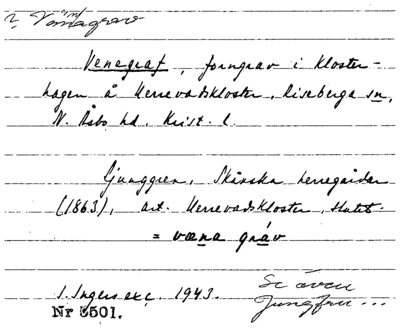 Venegraf, forngrav i Kloster-
hagen å Herrevadskloster, Riseberga sn,
N. Åsbo hd. Krist. l.
Ljunggren, Skånska herregårdar
(1863), art. Herrevadskloster, slutet.
= væna gráv
I. Ingers exc. 1943.
Se även
Jungfru...
Nr 5501.